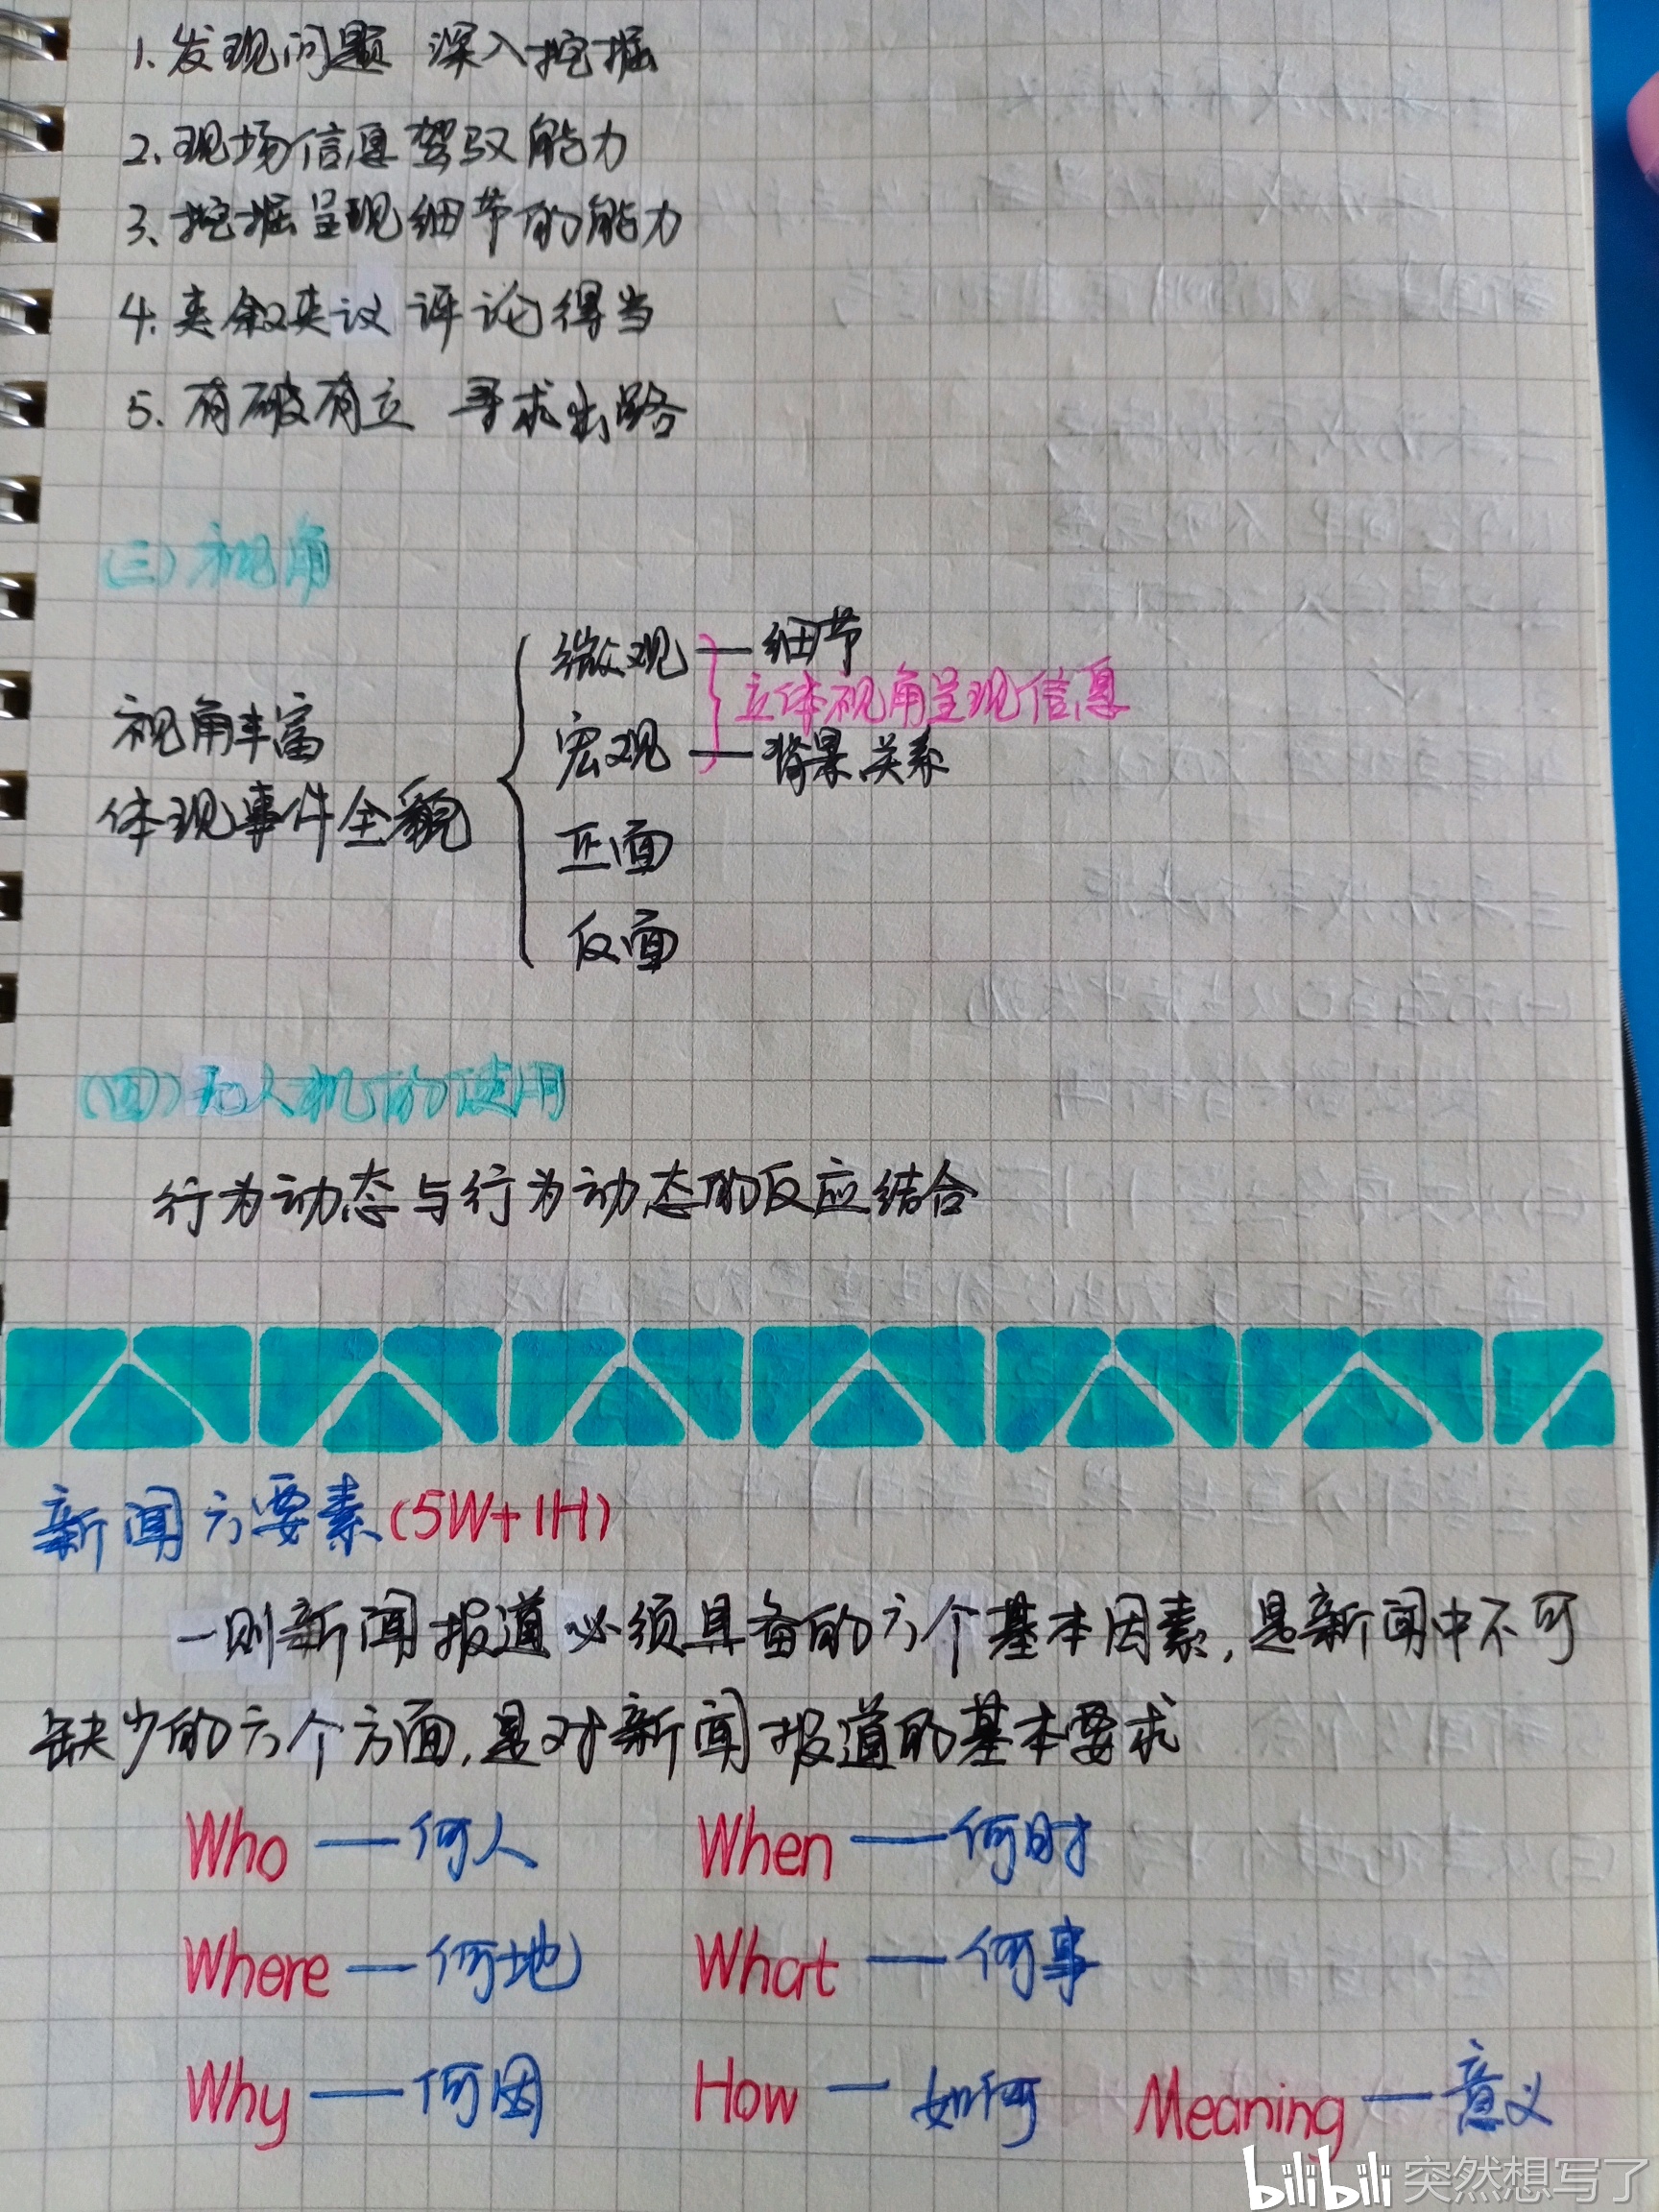 1. 发现问题 深入挖掘
2. 现场信息驾驭能力
3. 挖掘呈现细节的能力
4. 夹叙夹议 评论得当
5. 有破有立 寻求出路
(三) 视角
微观 — 细节
立体视角呈现信息
视角丰富
宏观 — 背景、关系
体现事件全貌
正面
反面
(四) 无人机的使用
行为动态与行为动态的反应结合
新闻六要素(5W+1H)
一则新闻报道必须具备的六个基本因素,是新闻中不可
缺少的六个方面,是对新闻报道的基本要求
Who — 何人 When — 何时
Where — 何地 What — 何事
Why — 何因 How — 如何 Meaning — 意义
bilibili 突然想写了